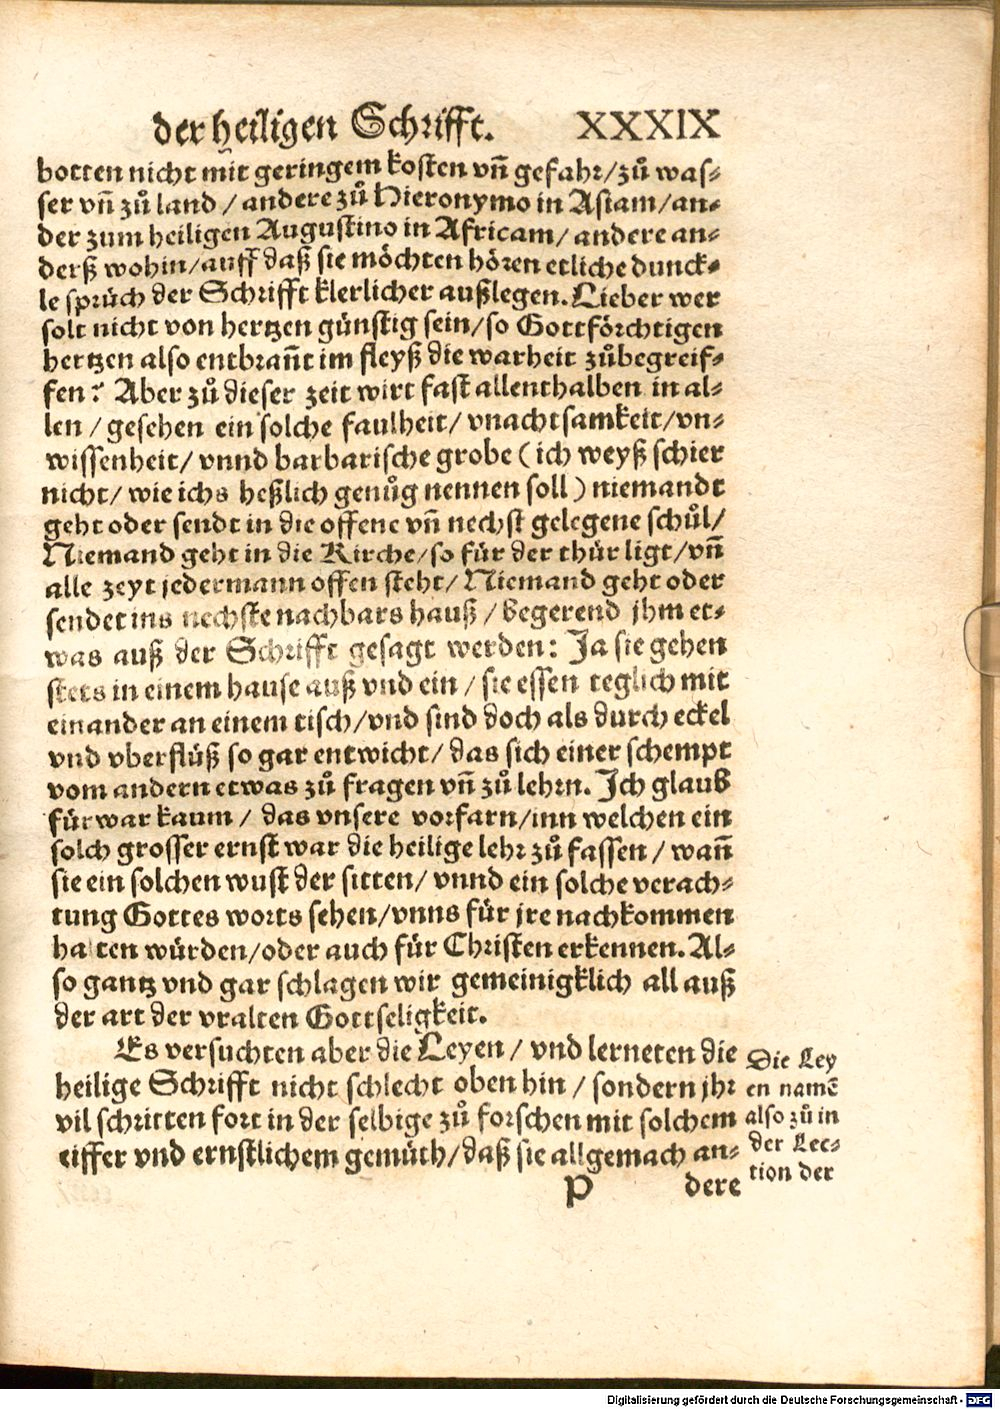 der heiligen Schrifft. XXXIX
botten nicht mit geringem kosten vñ gefahr/zů was-
ser vñ zů land / andere zů Hieronymo in Asiam/an-
der zum heiligen Augustino in Africam/ andere an-
derß wohin/auff daß sie möchten hören etliche dunck-
le sprüch der Schrifft klerlicher außlegen. Lieber wer
solt nicht von hertzen günstig sein/so Gottförchtigen
hertzen also entbrañt im fleyß die warheit zůbegreif-
fen? Aber zů dieser zeit wirt fast allenthalben in al-
len / gesehen ein solche faulheit/ vnachtsamkeit/vn-
wissenheit/ vnnd barbarische grobe (ich weyß schier
nicht/ wie ichs heßlich genůg nennen soll) niemandt
geht oder sendt in die offene vñ nechst gelegene schůl/
Niemand geht in die Kirche/so für der thür ligt/vñ
alle zeyt jedermann offen steht/ Niemand geht oder
sendet ins nechste nachbars hauß / begerend jhm et-
was auß der Schrifft gesagt werden: Ja sie gehen
stets in einem hause auß vnd ein / sie essen teglich mit
einander an einem tisch/vnd sind doch als durch eckel
vnd vberflüß so gar entwicht/ das sich einer schempt
vom andern etwas zů fragen vñ zů lehrn. Ich glaub
fürwar kaum / das vnsere vorfarn/inn welchen ein
solch grosser ernst war die heilige lehr zů fassen / wañ
sie ein solchen wust der sitten/ vnnd ein solche verach-
tung Gottes worts sehen/vnns für jre nachkommen
halten würden/oder auch für Christen erkennen. Al-
so gantz vnd gar schlagen wir gemeinigklich all auß
der art der vralten Gottseligkeit.
Es versuchten aber die Leyen / vnd lerneten die
heilige Schrifft nicht schlecht oben hin / sondern jhr
vil schritten fort in der selbige zů forschen mit solchem
eiffer vnd ernstlichem gemüth/daß sie allgemach an-
Die Ley
en namẽ
also zů in
der Lec-
tion der
P dere
Digitalisierung gefördert durch die Deutsche Forschungsgemeinschaft - DFG